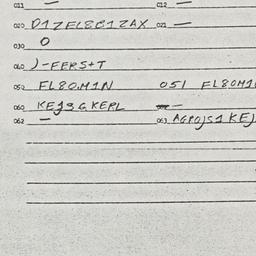 011 — 012 —
020 D1ZEL8C1ZAX 021 —
030 O
040 )-FERS+T
050 FL80M1N 051 FL80M1
060 KEJ9GKERL —
062 — 063 AGPOJS1 KEJ